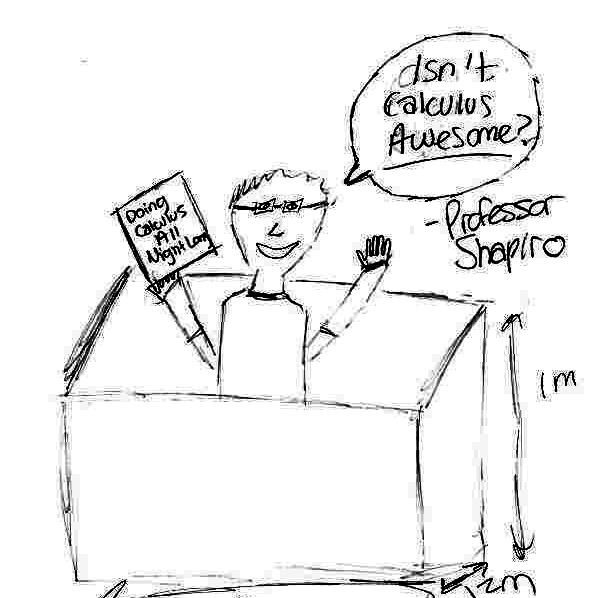 Isn't
Calculus
Awesome?
- Professor
Shapiro
Doing
Calculus
All
Night Long
1m
2m